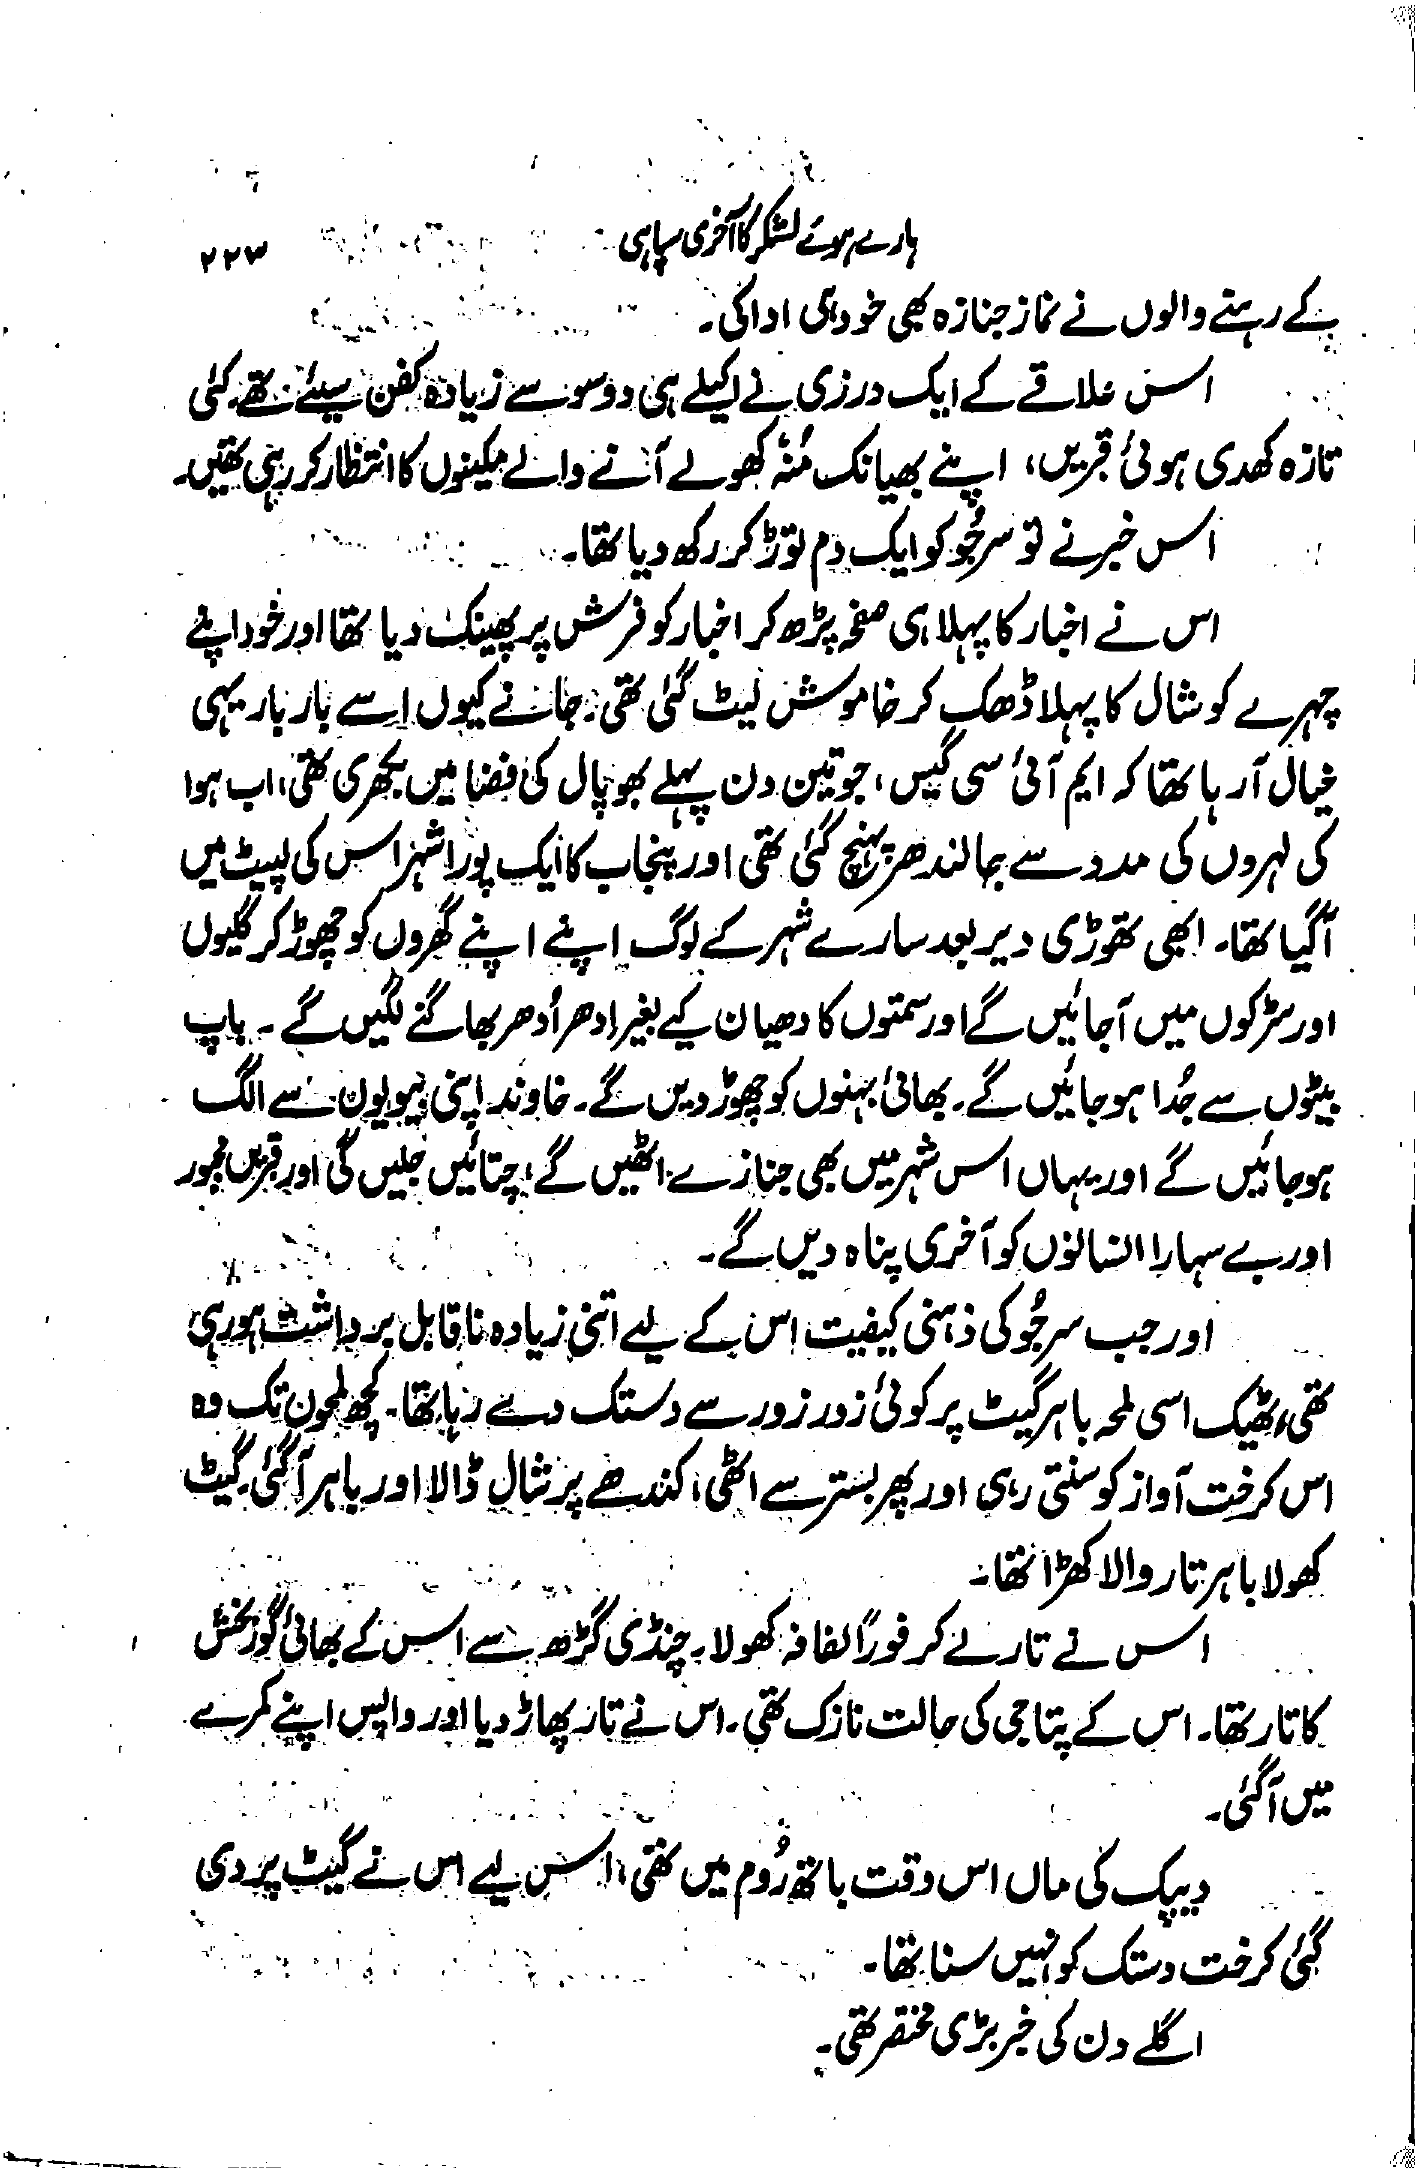 ہارے ہوئے لشکر کا آخری سپاہی
۲۲۳
کے رہنے والوں نے نماز جنازہ بھی خود ہی ادا کی۔
اس علاقے کے ایک درزی نے اکیلے ہی دو سو سے زیادہ کفن سیئے تھے۔ کئی
تازہ کھدی ہوئی قبریں، اپنے بھیانک مُنہ کھولے آنے والے مکینوں کا انتظار کر رہی تھیں۔
اس خبر نے تو سرجُو کو ایک دم توڑ کر رکھ دیا تھا۔
اس نے اخبار کا پہلا ہی صفحہ پڑھ کر اخبار کو فرش پر پھینک دیا تھا اور خود اپنے
چہرے کو شال کا پہلا ڈھک کر خاموش لیٹ گئی تھی۔ جانے کیوں اسے بار بار یہی
خیال آرہا تھا کہ ایم آئی سی گیس، جو تین دن پہلے بھوپال کی فضا میں بکھری تھی، اب ہوا
کی لہروں کی مدد سے جالندھر پہنچ گئی تھی اور پنجاب کا ایک پورا شہر اس کی لپیٹ میں
آگیا تھا۔ ابھی تھوڑی دیر بعد سارے شہر کے لوگ اپنے اپنے گھروں کو چھوڑ کر گلیوں
اور سڑکوں میں آجائیں گے اور سمتوں کا دھیان کیے بغیر اِدھر اُدھر بھاگنے لگیں گے۔ باپ
بیٹوں سے جُدا ہو جائیں گے۔ بھائی بہنوں کو چھوڑ دیں گے۔ خاوند اپنی بیویوں سے الگ
ہو جائیں گے اور یہاں اس شہر میں بھی جنازے اٹھیں گے، چتائیں جلیں گی اور قبریں مجبور
اور بے سہارا انسانوں کو آخری پناہ دیں گے۔
اور جب سرجُو کی ذہنی کیفیت اس کے لیے اتنی زیادہ ناقابل برداشت ہو رہی
تھی، ٹھیک اسی لمحہ باہر گیٹ پر کوئی زور زور سے دستک دے رہا تھا۔ کچھ لمحوں تک وہ
اس کرخت آواز کو سنتی رہی اور پھر بستر سے اٹھی، کندھے پر شال ڈالا اور باہر آگئی۔ گیٹ
کھولا باہر تار والا کھڑا تھا۔
اس نے تار لے کر فوراً لفافہ کھولا۔ چنڈی گڑھ سے اس کے بھائی گوربخش
کا تار تھا۔ اس کے پتاجی کی حالت نازک تھی۔ اس نے تار پھاڑ دیا اور واپس اپنے کمرے
میں آگئی۔
دیپک کی ماں اس وقت باتھ رُوم میں تھی، اس لیے اس نے گیٹ پر دی
گئی کرخت دستک کو نہیں سنا تھا۔
اگلے دن کی خبر بڑی مختصر تھی۔